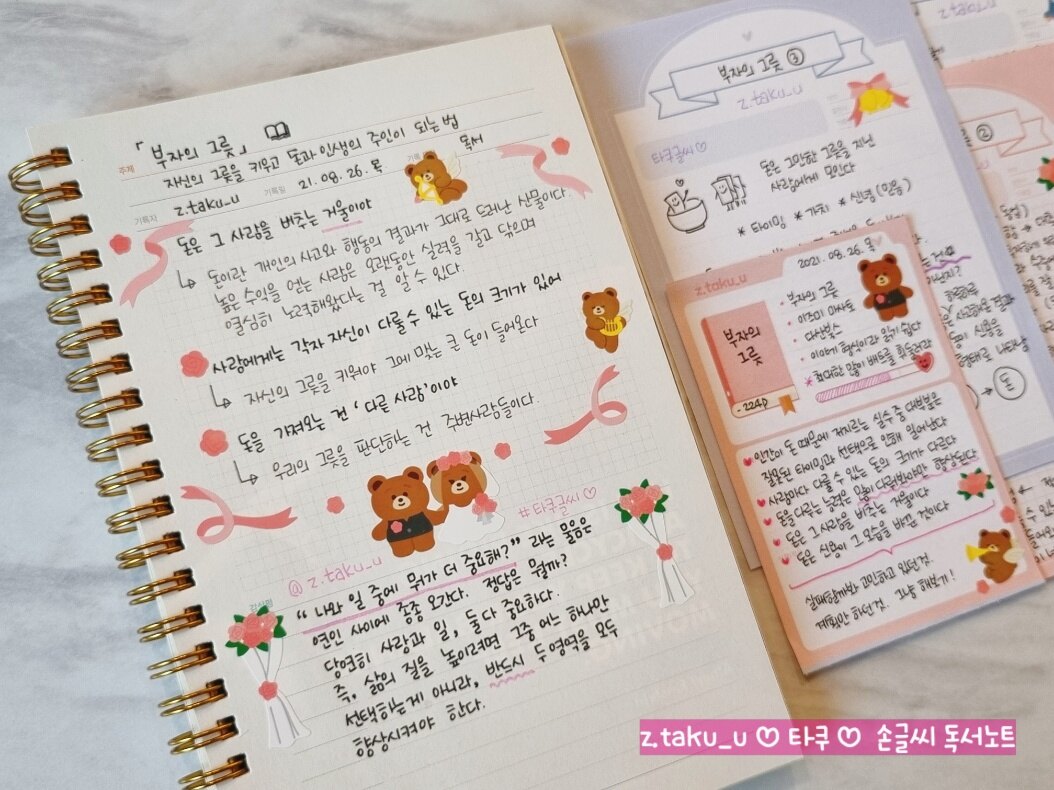 「부자의 그릇」
주제
자신의 그릇을 키우고 돈과 인생의 주인이 되는 법
기록일
21. 08. 26. 목
독서
기록자
z.taku_u
돈은 그 사람을 비추는 거울이야
돈이란 개인의 사고와 행동의 결과가 그대로 드러난 산물이다.
높은 수익을 얻는 사람은 오랫동안 실력을 갈고 닦으며
열심히 노력해왔다는 걸 알 수 있다.
사람에게는 각자 자신이 다룰 수 있는 돈의 크기가 있어
자신의 그릇을 키워야 그에 맞는 큰 돈이 들어온다
돈을 가져오는 건 '다른 사람'이야
우리의 그릇을 판단하는 건 주변사람들이다.
#타쿠글씨♡
@z.taku_u
"나와 일 중에 뭐가 더 중요해?" 라는 물음은
연인 사이에 종종 오간다. 정답은 뭘까?
당연히 사랑과 일, 둘다 중요하다.
즉, 삶의 질을 높이려면 그중 어느 하나만
선택하는게 아니라, 반드시 두 영역을 모두
향상시켜야 한다.
부자의 그릇 ③
z.taku_u
타쿠글씨♡
돈은 그만한 그릇을 지닌
사람에게 모인다
* 타이밍 * 가치 * 신념 (믿음)
돈
z.taku_u
②
z.taku_u
2021. 08. 26. 목
부자의
그릇
· 부자의 그릇
· 이즈미 마사토
· 다산북스
· 이야기 형식이라 읽기 쉽다
* 최대한 많이 배트를 휘둘러라
- 224p
인간이 돈 때문에 저지르는 실수 중 대부분은
잘못된 타이밍과 선택으로 인해 일어난다
사람마다 다룰 수 있는 돈의 크기가 다르다
돈을 다루는 능력은 많이 다뤄봐야만 향상된다
돈은 그 사람을 비추는 거울이다
돈은 신용이 그 모습을 바꾼 것이다
실패할까봐 고민하고 있던 것.
계획만 하던 것. 그냥 해보기!
z.taku_u ♡ 타쿠 ♡ 손글씨 독서노트